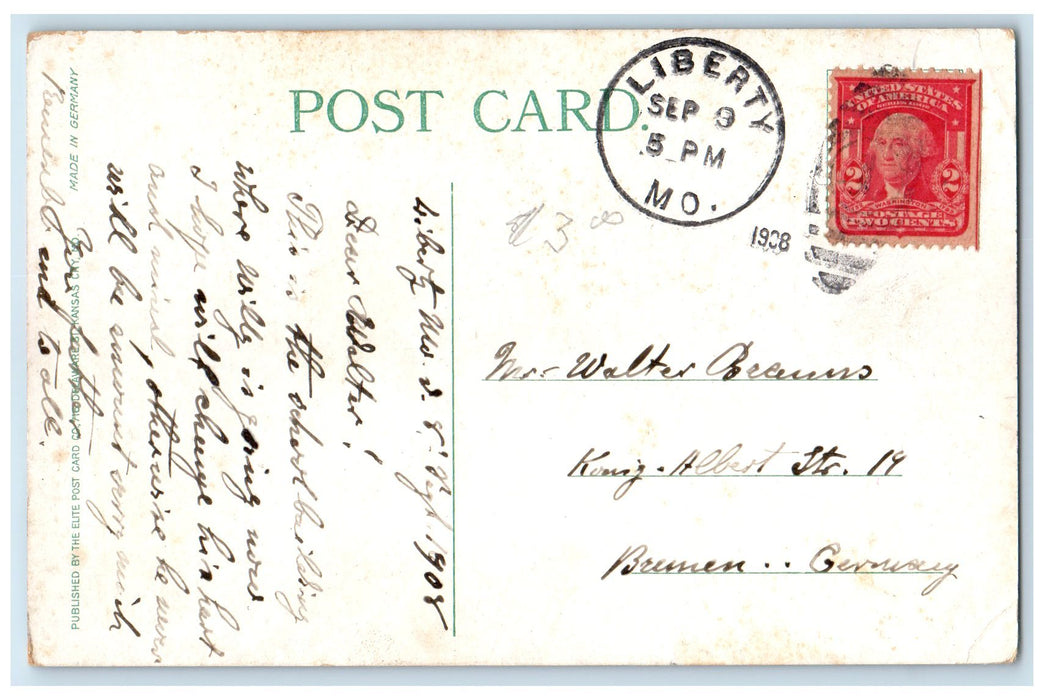 POST CARD.
LIBERTY
SEP 9
5 PM
MO.
1908
UNITED STATES
OF AMERICA
SERIES 1902
2 2
WASHINGTON
POSTAGE
TWO CENTS
Mr. Walter
König-Albert Str. 19
Bremen.. Germany
Liberty Mo. d. 8. Sept. 1908
Dear Walter!
This is the school building
where Willy is going now.
I hope will change his hart
and mind, otherwise he never
will be amount very much
Your father,
Remember and to all.
MADE IN GERMANY
PUBLISHED BY THE ELITE POST CARD CO. KANSAS CITY, MO.